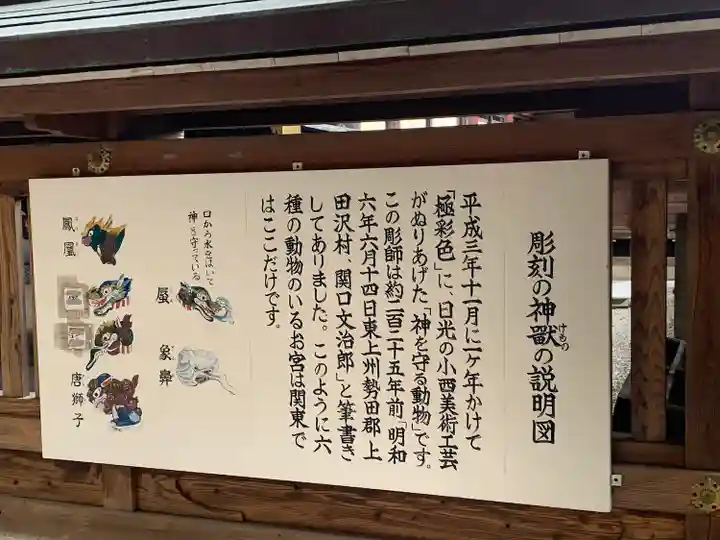 彫刻の神獸の説明図
けもの
平成三年十一月に一ケ年かけて
「極彩色」に、日光の小西美術工芸
がぬりあげた「神を守る動物」です。
この彫師は約二百二十五年前「明和
六年六月十四日東上州勢田郡上
田沢村、関口文治郎」と筆書き
してありました。このように六
種の動物のいるお宮は関東で
はここだけです。
口から水をはいて
神を守っている
蜃
象鼻
鳳凰
唐獅子